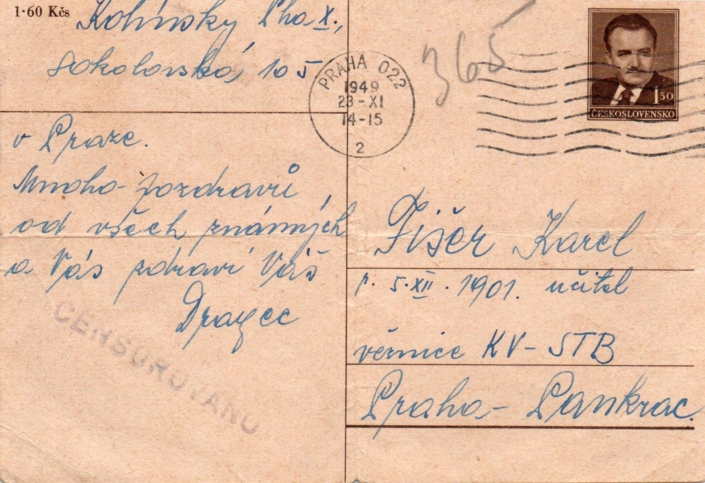 1·60 Kčs
Kolínský Pha X.,
Sokolovská, 105
365
PRAHA 022
1949
23-XI
14-15
2
1 50
ČESKOSLOVENSKO
v Praze.
Mnoho pozdravů
od všech známých
a Vás zdraví Váš
CENSUROVÁNO
Fišer Karel
n. 5.XII. 1901. učitel
věznice KV-STB
Praha-Pankrac.